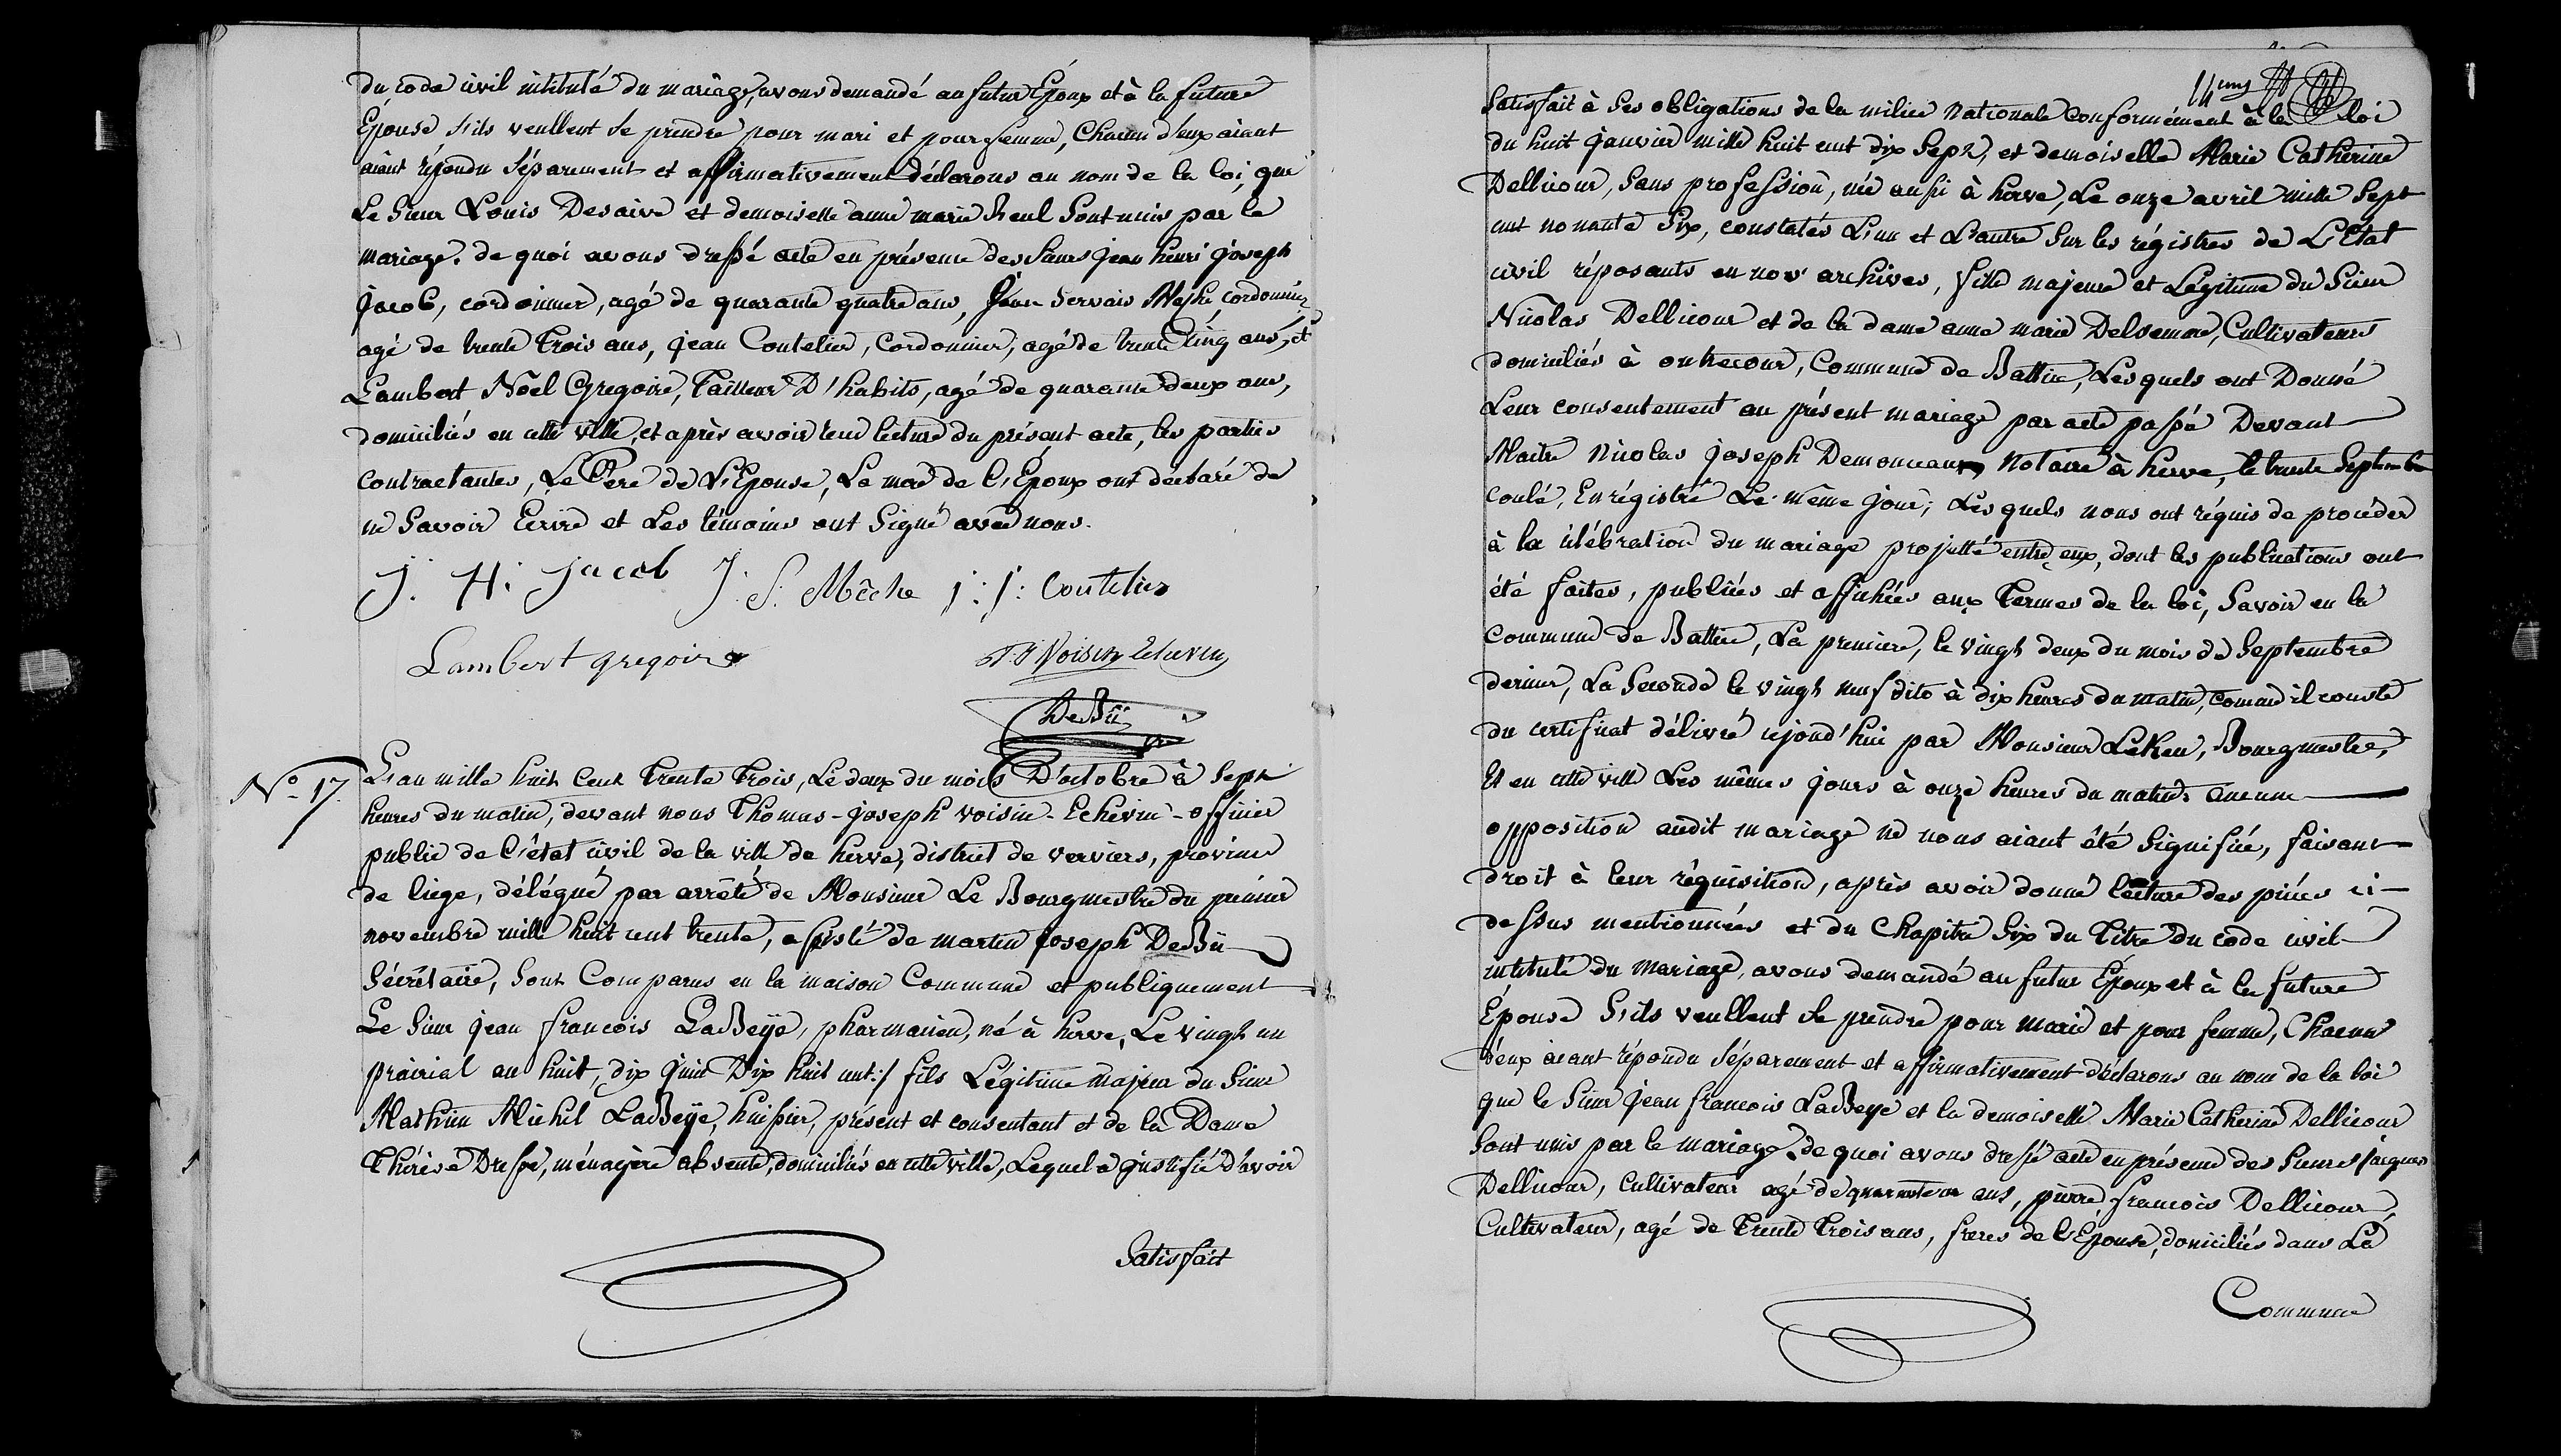 du code civil intitulé du mariage, avons demandé au futur Époux et à la future
Épouse s'ils veullent se prendre pour mari et pour femme, Chacun d'eux aiant
aiant répondu séparement et affirmativement déclarons au nom de la loi, que
Le Sieur Louis Desaive et demoiselle anne marie Reul sont unis par le
mariage. de quoi avons dressé acte en présence des Sieurs jean henri joseph
jacob, cordonnier, agé de quarante quatre ans, Jean Servais Meche, cordonnier
agé de trente Trois ans, jean Coutelier, Cordonnier, agé de trente Cinq ans, et
Lambert Noël Gregoire, Tailleur D'habits, agé de quarante deux ans,
domiciliés en cette ville, et après avoir lecture du présent acte, les parties
contractantes, Le Père de L'Épouse, La mere de L'Époux ont déclaré de
ne Savoir Ecrire et Les témoins ont Signé avec nous.
J. H. jacob J. S. Mêche J: J: Coutelier
Lambert gregoire T. J Voisin Echevin
DeBü
N.o 17. L'an mille huit Cent Trente Trois, Le deux du mois D'octobre à Sept
heures du matin, devant nous Thomas-joseph voisin-Echevin-officier
public de l'état civil de la ville de herve, district de verviers, province
de liege, délégué par arrêté de Monsieur Le Bourgmestre du premier
novembre mille huit cent trente, assisté de martin joseph DeBü
Sécrétaire, Sont Comparus en la maison Commune et publiquement
Le Sieur jean francois LaBeye, pharmacien, né à herve, Le vingt un
prairial an huit, dix juin Dix huit cent :/ fils Légitime majeur du Sieur
Mathieu Michel LaBeye, huissier, présent et consentant et de la Dame
Thérèse Dresse, ménagère absente, domiciliés en cette ville, Lequel a justifié d'avoir
Satisfait
Satisfait à Ses obligations de la milice Nationale Conformément à la loi
du huit janvier mille huit cent dix Sept, et demoiselle Marie Catherine
Dellicour, Sans profession, née aussi à herve, Le onze avril mille Sept
cent nonante Six, constatés L'un et L'autre Sur les régistres de L'État
civil réposants en nos archives, fille majeure et Légitime du Sieur
Nicolas Dellicour et de la dame anne marie Delsemme, Cultivateurs
domiciliés à outrecour, Commune de Battice, Lesquels ont Donné
Leur consentement au présent mariage par acte passé Devant
Maitre Nicolas joseph Demonceau, Notaire à herve, le trente Septembre
coulé, Enrégistré Le même jour; Lesquels nous ont réquis de procéder
à la célébration du mariage projetté entre eux, dont les publications ont
été faites, publiées et affichées aux Termes de la loi, Savoir en la
Commune de Battice, La premiere, le vingt deux du mois de Septembre
dernier, La Seconde le vingt neuf dito à dix heures du matin, comme il conste
du certificat délivré cejourd'hui par Monsieur LeKeu, Bourgmestre,
Et en cette ville Les mêmes jours à onze heures du matin. Aucune
opposition audit mariage ne nous aiant été Signifiée, faisant
droit à leur réquisition, après avoir donné lecture des pièces ci-
dessus mentionnées et du Chapitre Six du Titre du code civil
intitulé du Mariage, avons demandé au futur Époux et à la future
Épouse S'ils veullent se prendre pour mari et pour femme, Chacun
d'eux aiant répondu séparement et affirmativement déclarons au nom de la loi
que le Sieur Jean francois LaBeye et la demoiselle Marie Catherine Dellicour
Sont unis par le mariage. de quoi avons dressé acte en présence des Sieurs jacques
Dellicour, Cultivateur agé de ans, pierre francois Dellicour,
Cultivateur, agé de Trente Trois ans, freres de L'Épouse, domiciliés dans La
Commune